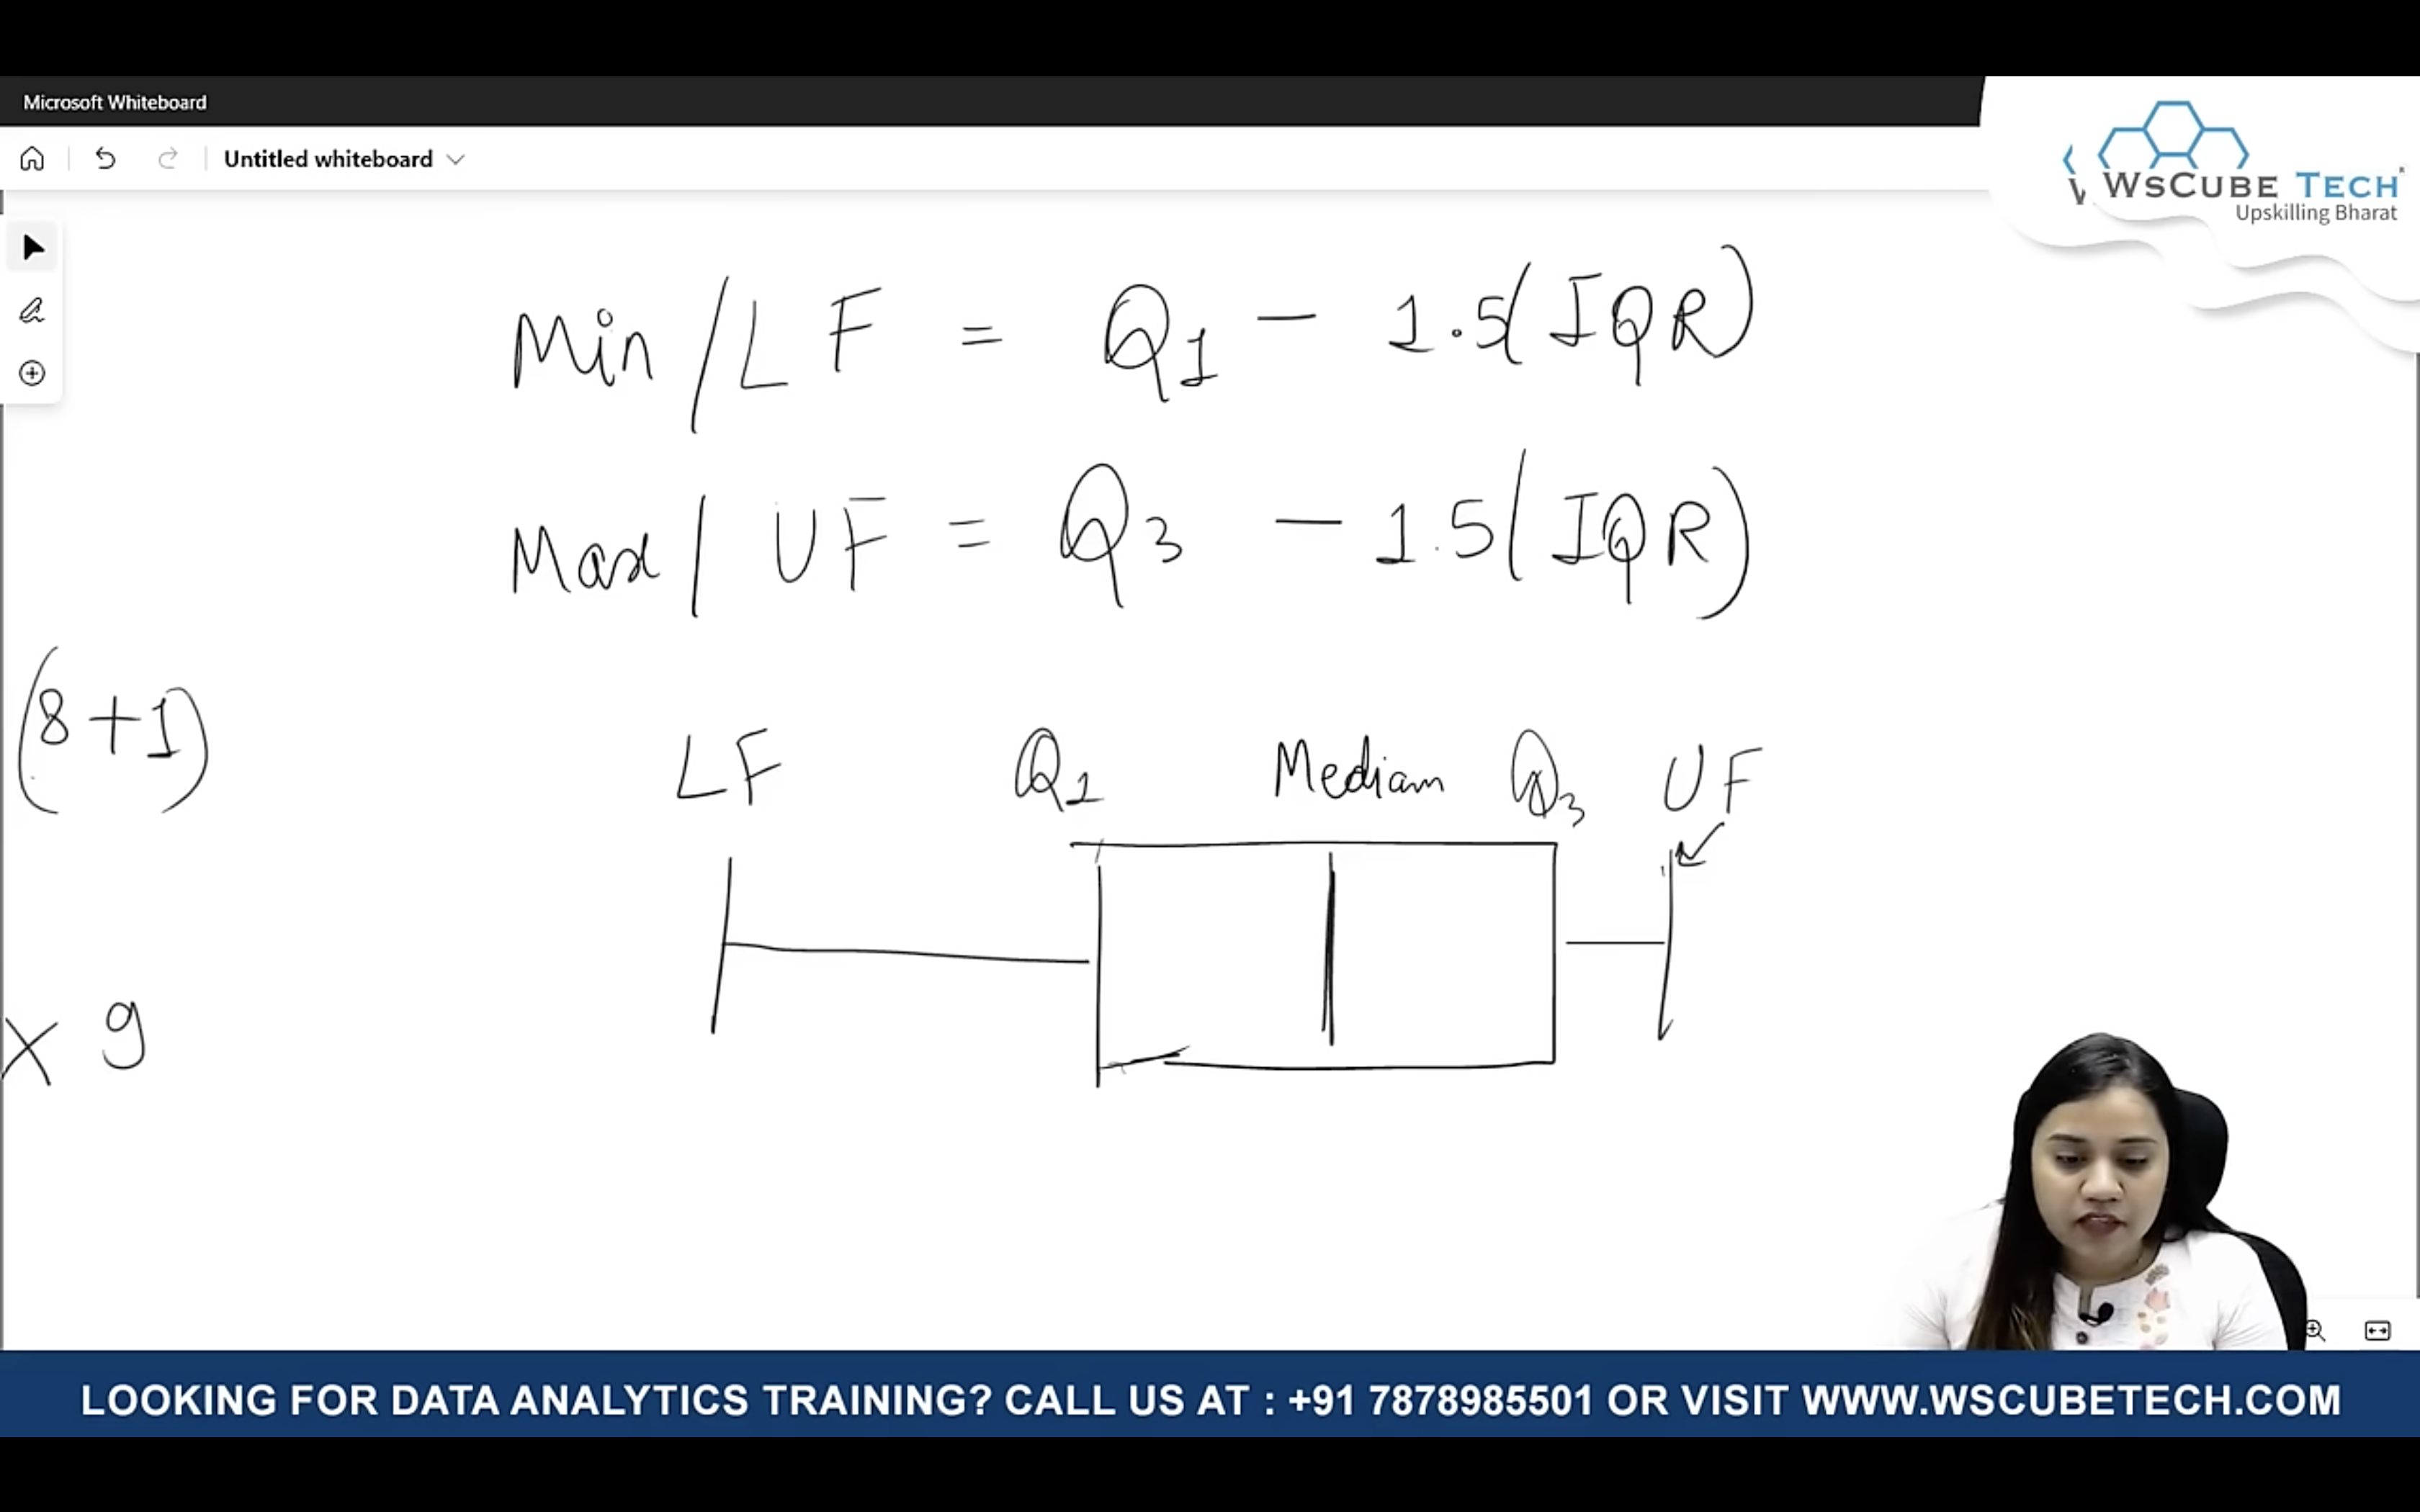 Microsoft Whiteboard
Untitled whiteboard
WsCube Tech
Upskilling Bharat
Min / LF = Q1 - 1.5(IQR)
Max / UF = Q3 - 1.5(IQR)
(8+1)
LF Q1 Median Q3 UF
x 9
LOOKING FOR DATA ANALYTICS TRAINING? CALL US AT : +91 7878985501 OR VISIT WWW.WSCUBETECH.COM